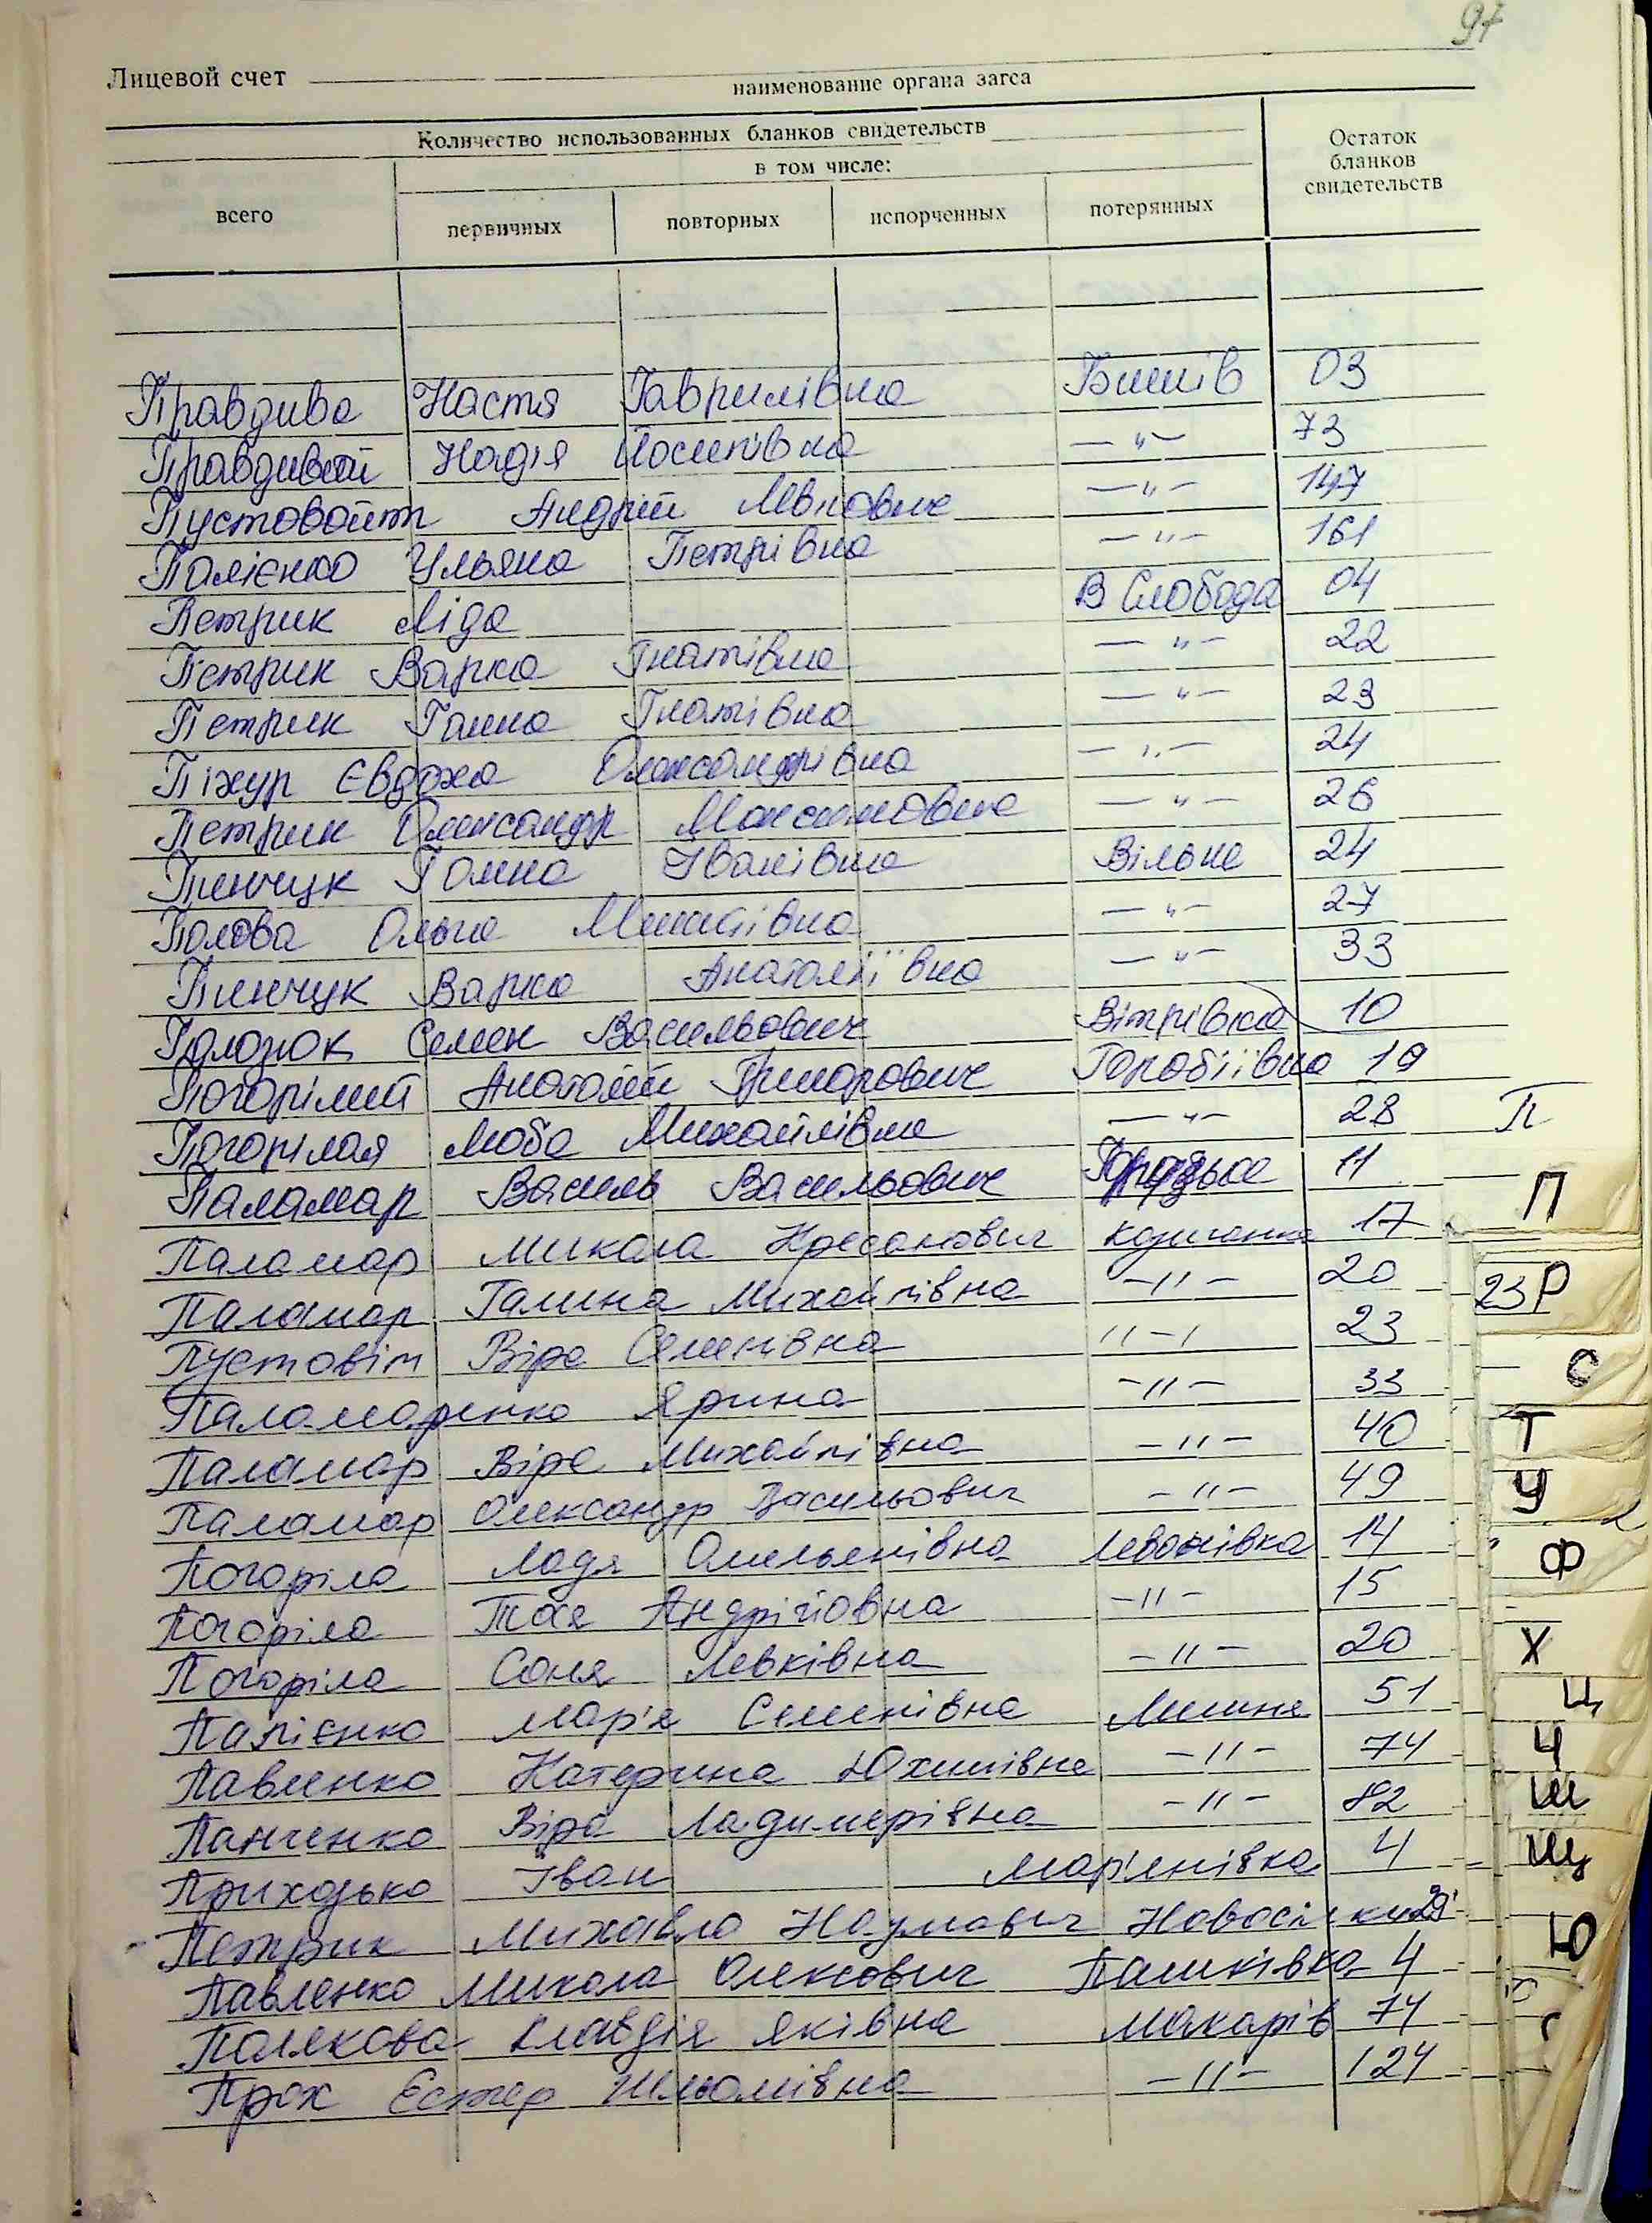 97
Лицевой счет
наименование органа загса
Количество использованных бланков свидетельств
в том числе:
Остаток бланков свидетельств
всего первичных повторных испорченных потерянных
Правдива Настя Гаврилівна Бишів 03
Правдивой Надія Йосипівна —"— 73
Пустовойт Андрій Левкович —"— 147
Палієнко Ульяна Петрівна —"— 161
Петрик Ліда В Слобода 04
Петрик Варка Гнатівна —"— 22
Петрик Ганна Гнатівна —"— 23
Піжур Євдоха Олександрівна —"— 24
Петрик Олександр Максимович —"— 26
Пинчук Ганна Іванівна Вільне 24
Попова Ольга —"— 27
Пинчук Варка Анатоліївна —"— 33
Семен Васильович Вітрівка 10
Погорілий Анатолій Горобіївка 19
Погорілая Люба Михайлівна —"— 28
Паламар Василь Васильович 11
Паламар Микола Кресанович Козичанка 17
Паламар Галина Михайлівна —"— 20
Пустовіт Віра Семенівна "—" 23
Паламаренко Ярина —"— 33
Паламар Віра Михайлівна —"— 40
Паламар Олександр Васильович —"— 49
Погоріла Ладя Омелянівна Леонівка 14
Погоріла Тося Андрійовна —"— 15
Погоріла Соня Левківна —"— 20
Палієнко Мар'я Семенівна Лишня 51
Павленко Катерина Юхимівна —"— 74
Панченко Віра Ладимерівна —"— 82
Приходько Іван Мар'янівка 4
Петрик Михайло Наумович Новосілки 29
Павленко Микола Олексович Пашківка 4
Полякова Клавдія Яківна Макарів 74
Прох Естер Шльомівна —"— 124
П
П
23 Р
С
Т
У
Ф
Х
Ц
Ч
Ш
Щ
Ю